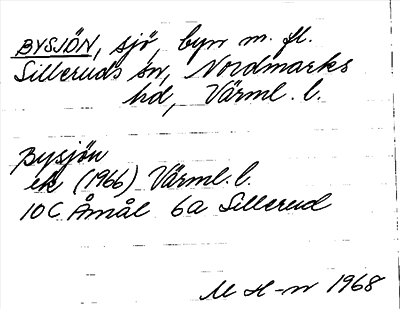 BYSJÖN, sjö, byn m. fl.
Silleruds sn, Nordmarks
hd, Värml. l.
Bysjön
ek (1966) Värml. l.
10C Åmål 6a Sillerud
M H-n 1968